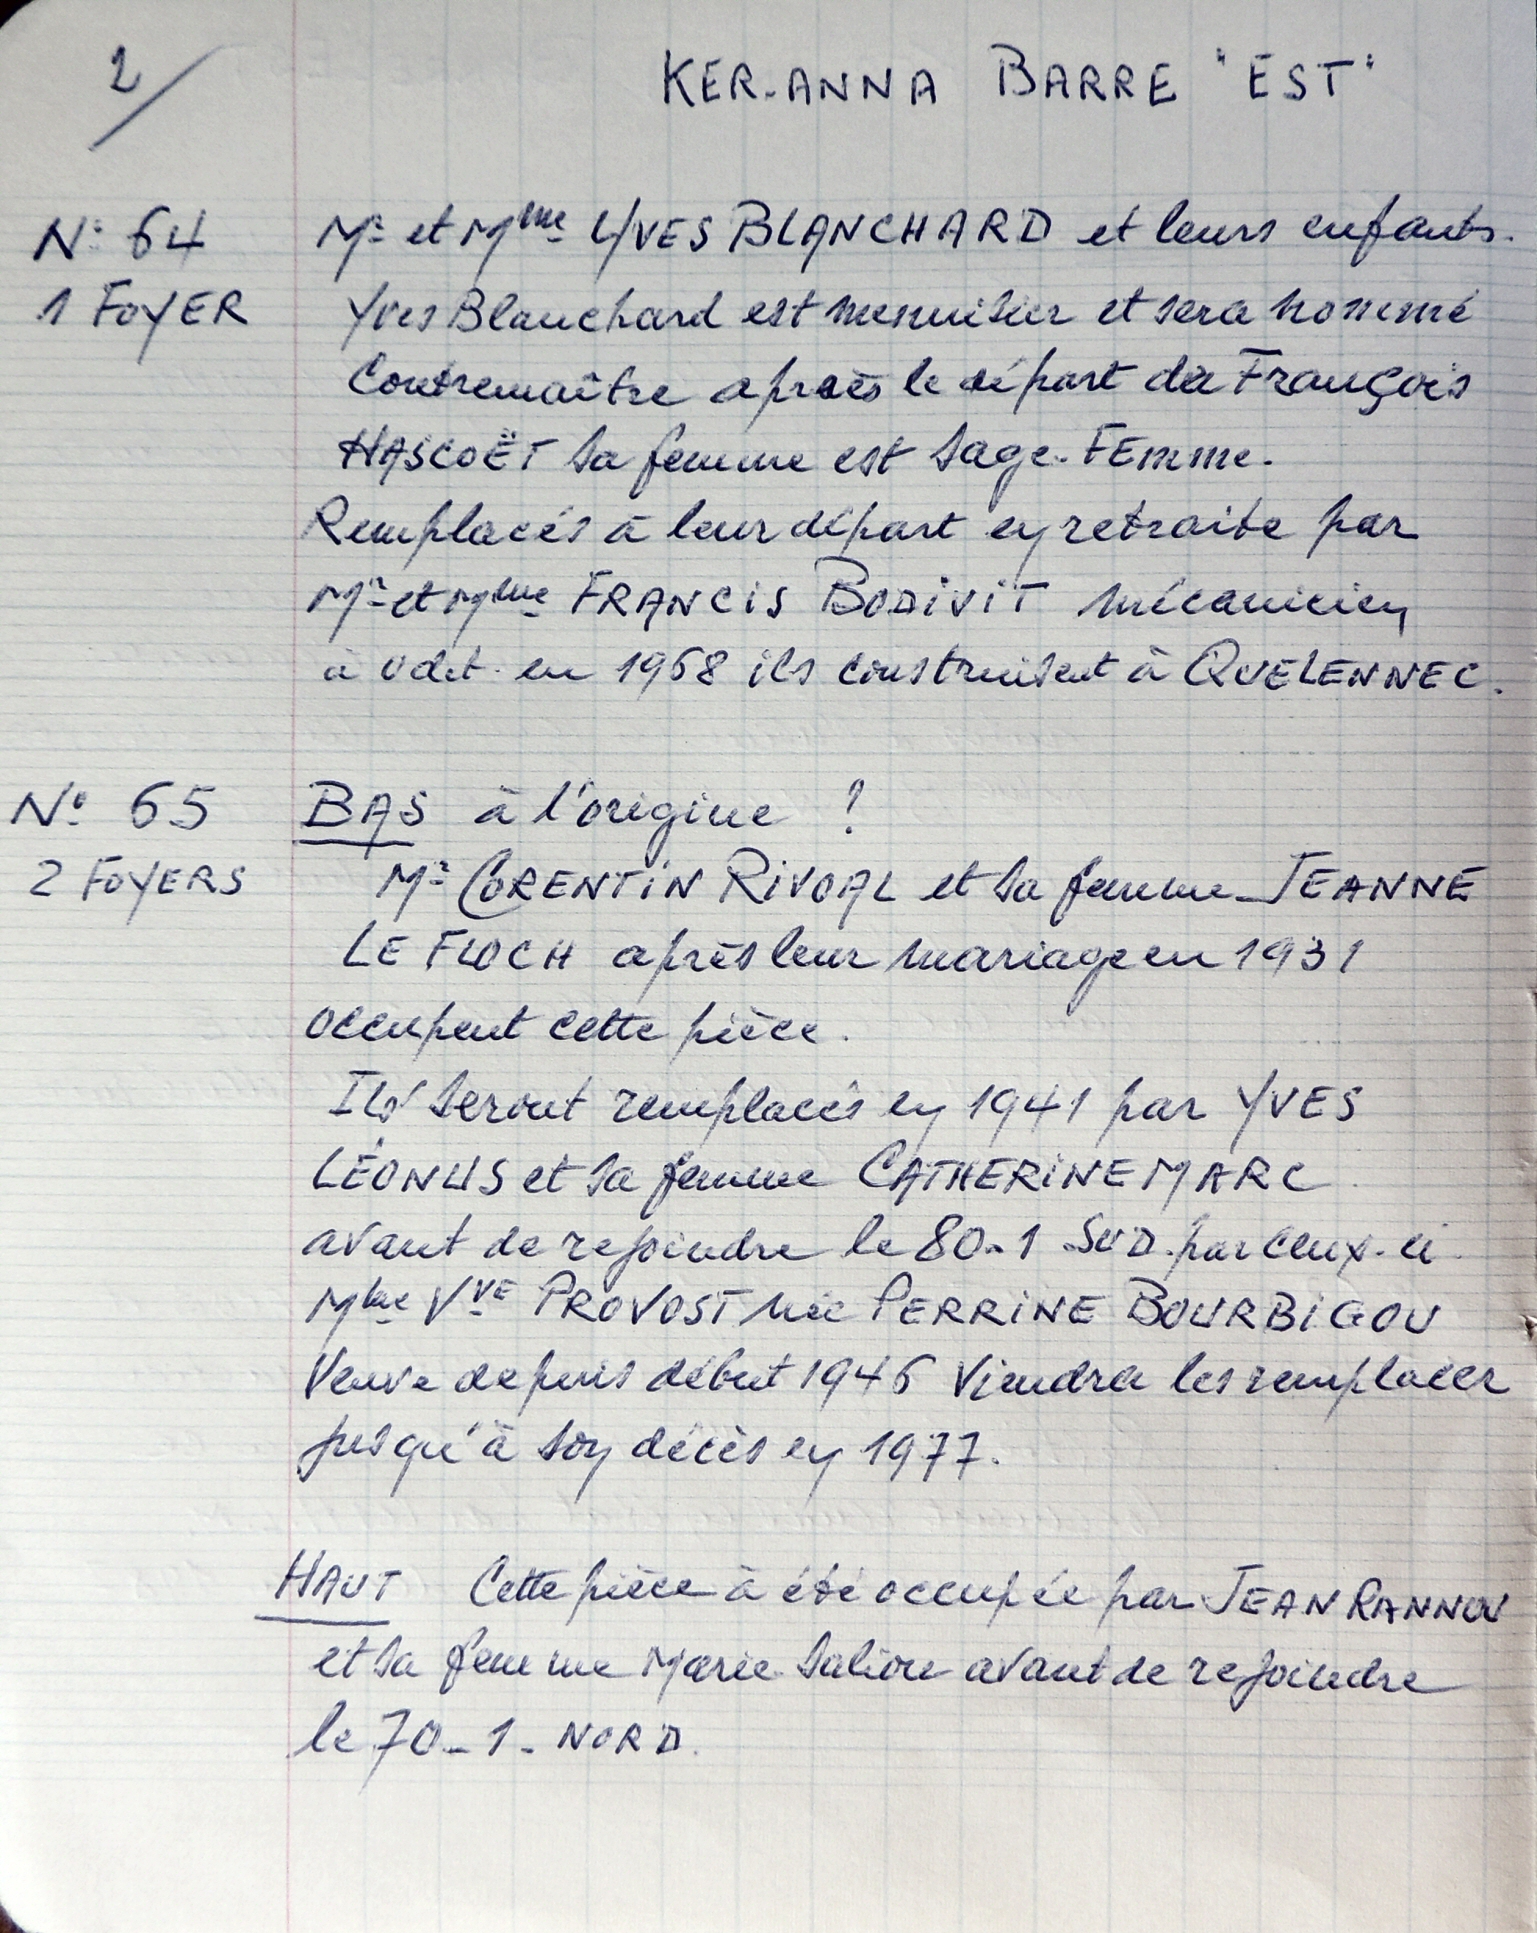 2/
KER-ANNA BARRE "EST"
N° 64
Mr et Mme YVES BLANCHARD et leurs enfants.
1 FOYER
Yves Blanchard est menuisier et sera nommé
Contremaître après le départ de François
HASCOËT sa femme est sage-FEmme.
Remplacés à leur départ en retraite par
Mr et Mme FRANCIS BODIVIT mécanicien
à Odet. en 1968 ils construisent à QUELENNEC.
N° 65
BAS à l'origine ?
2 FOYERS
Mr CORENTIN RIVOAL et sa femme JEANNE
LE FLOCH après leur mariage en 1931
occupent cette pièce.
Ils seront remplacés en 1941 par YVES
LÉONUS et sa femme CATHERINE MARC
avant de rejoindre le 80-1 SUD. par ceux-ci
Mme VVE PROVOST née PERRINE BOURBIGOU
Veuve depuis début 1946 Viendra les remplacer
jusqu'à son décès en 1977.
HAUT Cette pièce à été occupée par JEAN RANNOU
et sa femme Marie Saliou avant de rejoindre
le 70-1-NORD.